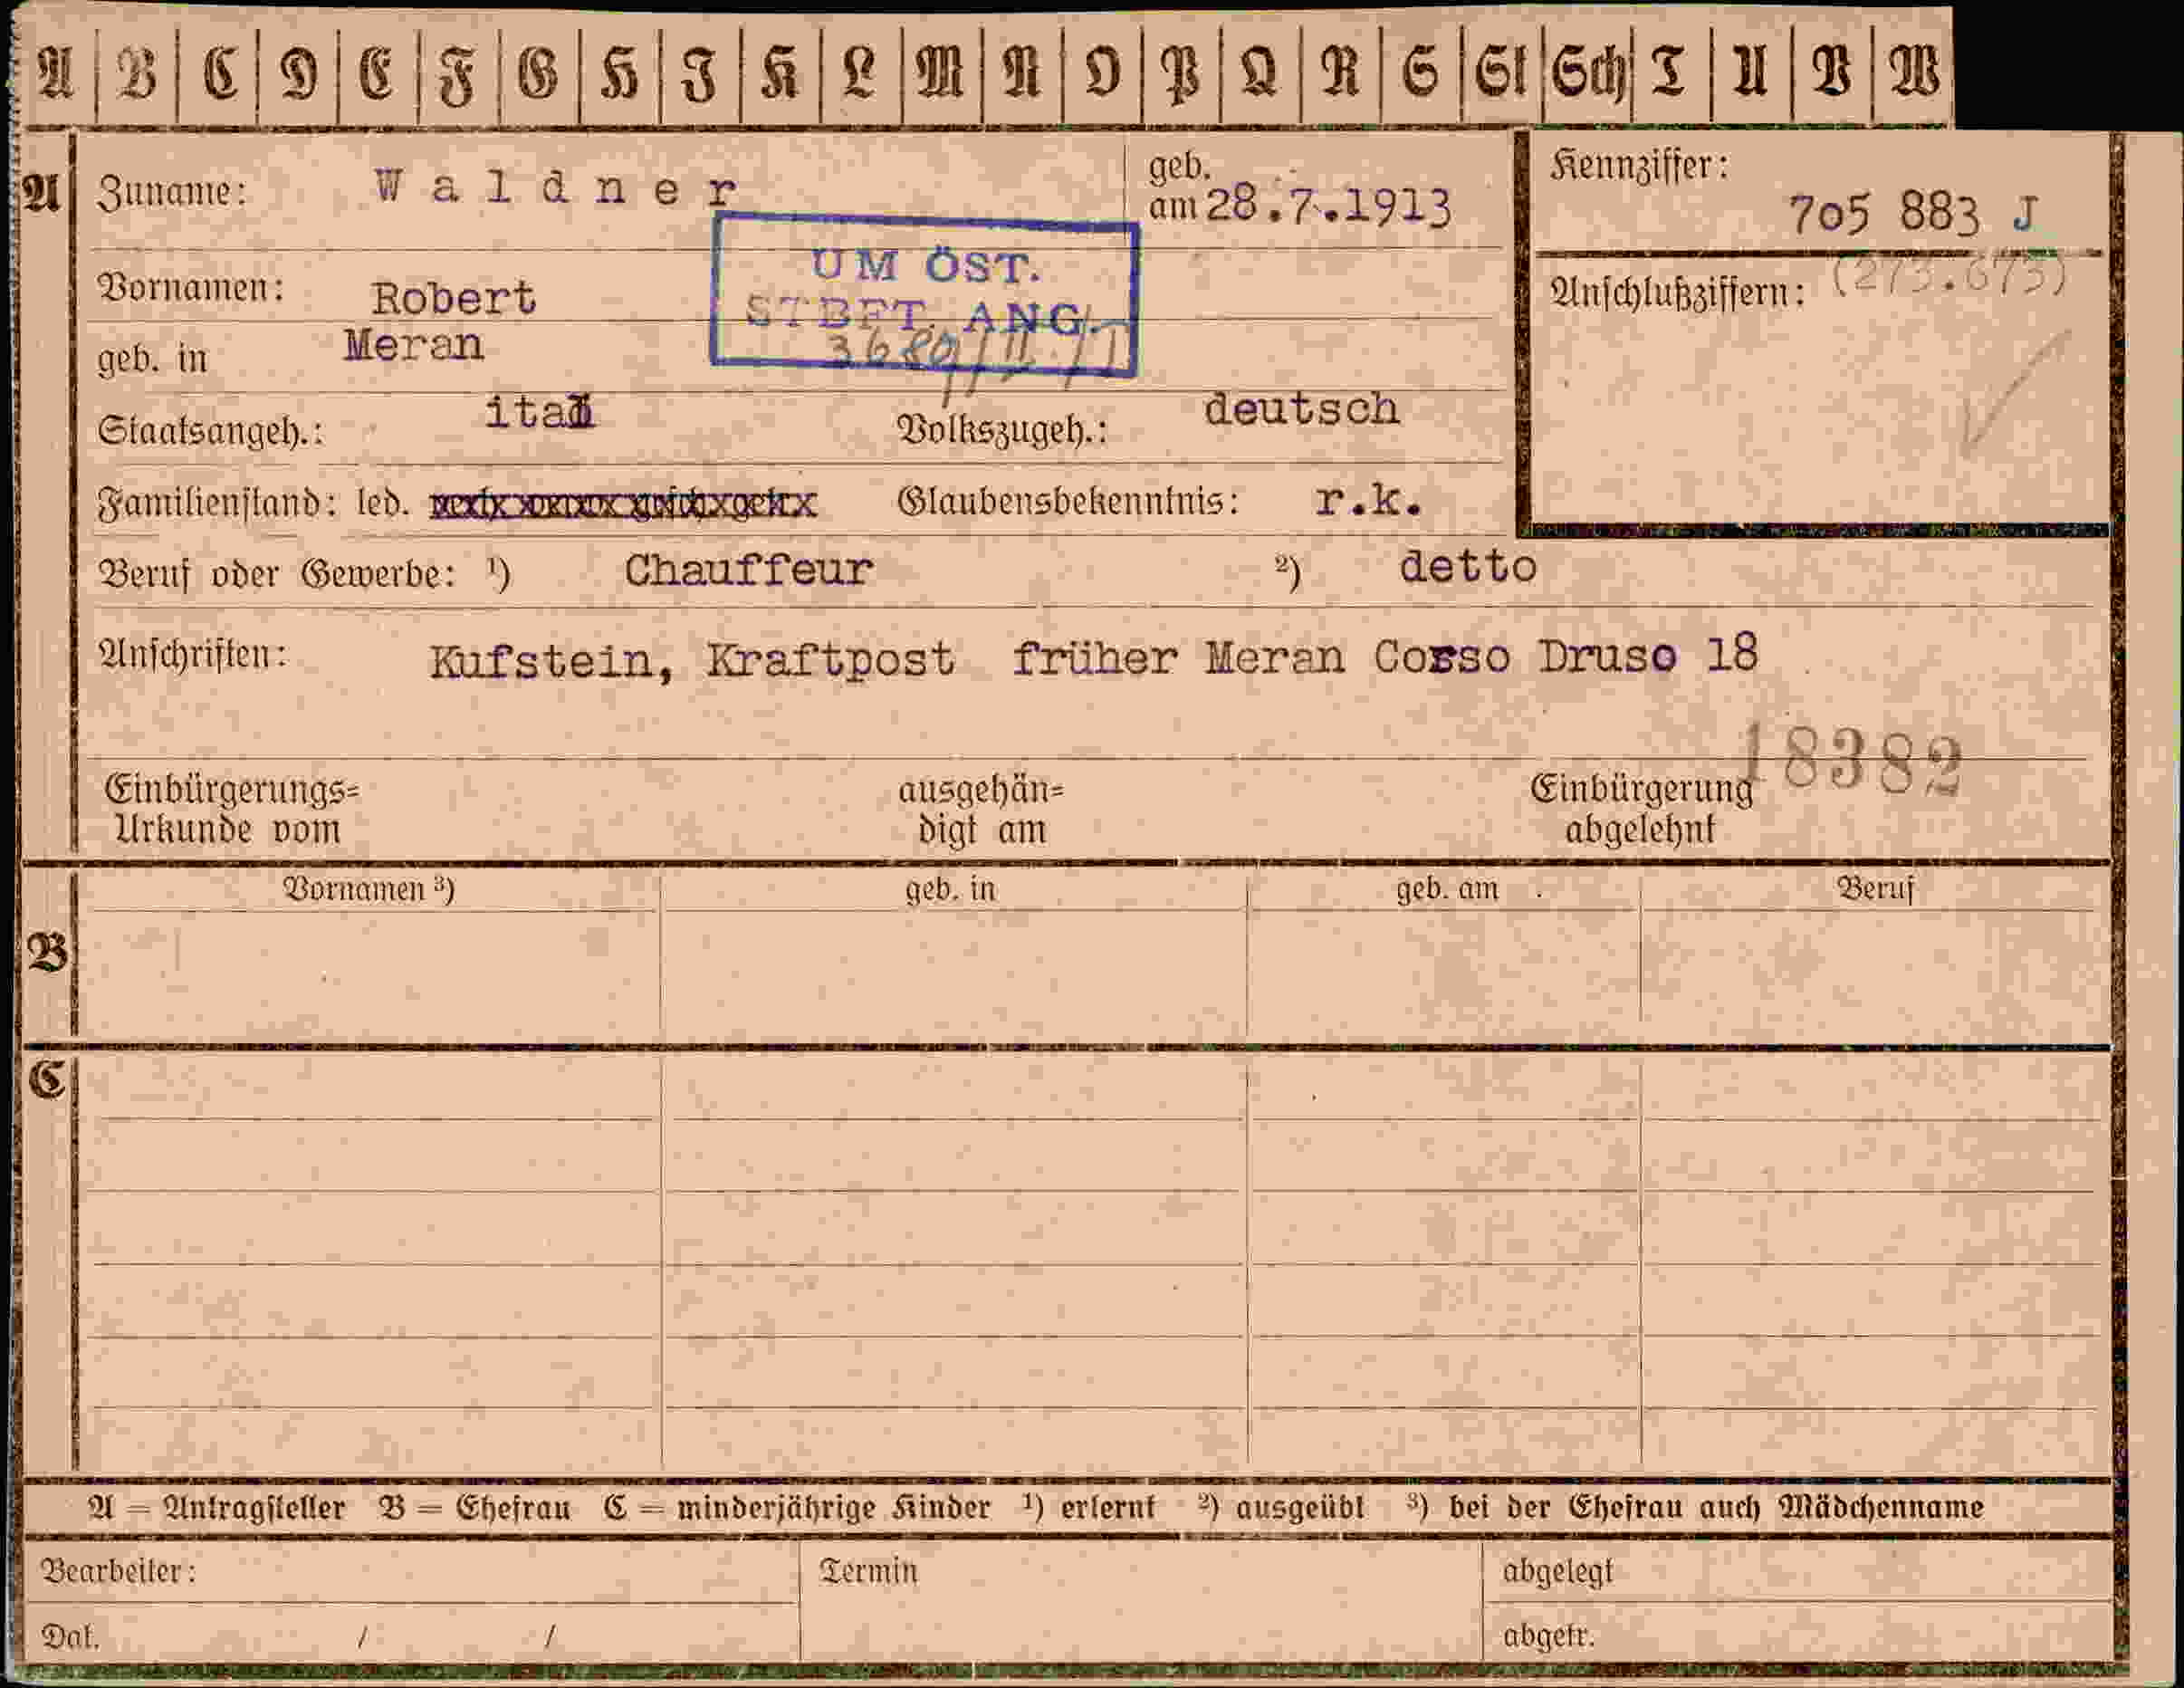 A B C D E F G H J K L M N O P Q R S St Sch T U V W
A Zuname: Waldner geb. am 28.7.1913 Kennziffer: 705 883 J
UM ÖST.
STBFT. ANG.
Vornamen: Robert Anschlußziffern: (273.675)
geb. in Meran
Staatsangeh.: ital Volkszugeh.: deutsch
Familienstand: led. Glaubensbekenntnis: r.k.
Beruf oder Gewerbe: 1) Chauffeur 2) detto
Anschriften: Kufstein, Kraftpost früher Meran Corso Druso 18
18382
Einbürgerungs= ausgehän= Einbürgerung
Urkunde vom digt am abgelehnt
Vornamen 3) geb. in geb. am Beruf
B
C
A = Antragsteller B = Ehefrau C = minderjährige Kinder 1) erlernt 2) ausgeübt 3) bei der Ehefrau auch Mädchenname
Bearbeiter: Termin abgelegt
Dat. / / abgetr.